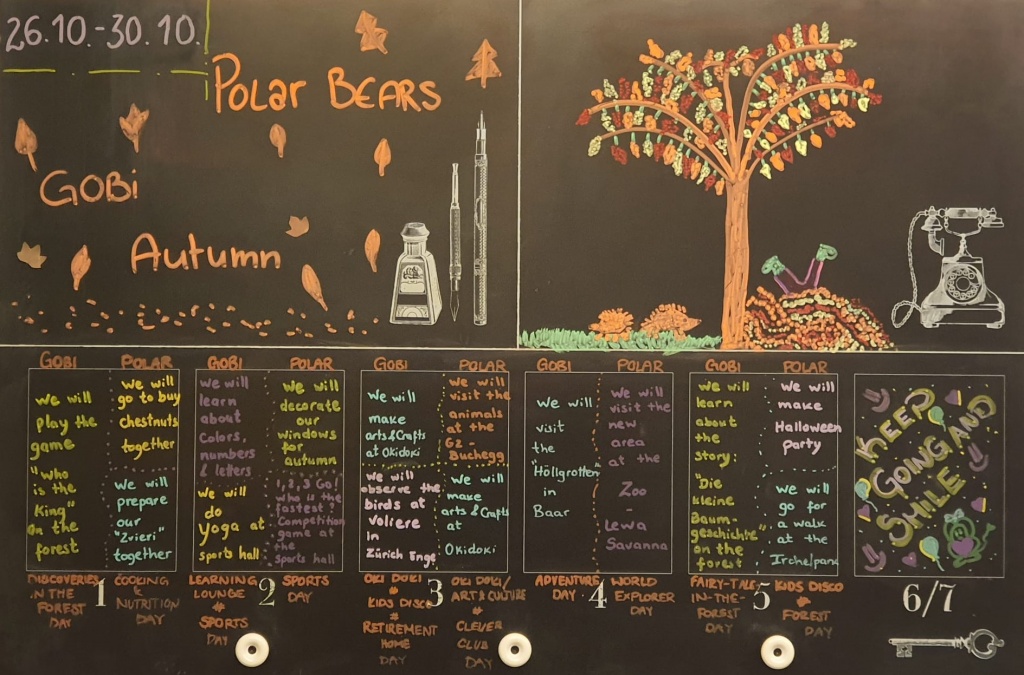 26.10.-30.10.
Polar BEARS
GOBi
Autumn
GOBI
we will
play the
game
"who
is the
King"
on the
forest
DISCOVERIES
IN THE
FOREST
DAY
POLAR
we will
go to buy
chestnuts
together
we will
prepare
our
"Zvieri"
together
COOKING
&
NUTRITION
DAY
1
GOBI
we will
learn
about
colors,
numbers
& letters
we will
do
yoga at
sports hall
LEARNING
LOUNGE
#
SPORTS
DAY
POLAR
we will
decorate
our
windows
for
autumn
1,2,3 Go!
who is the
fastest?
Competition
game at
the
sports hall
SPORTS
DAY
2
GOBI
we will
make
arts & Crafts
at Okidoki
we will
observe the
birds at
Voliere
in
Zürich Enge
OKI DOKI
#
KIDS DISCO
#
RETIREMENT
HOME
DAY
POLAR
we will
visit the
animals
at the
GZ -
Buchegg
we will
make
arts & Crafts
at
Okidoki
OKI DOKI/
ART & CULTURE
#
CLEVER
CLUB
DAY
3
GOBI
we will
visit
the
"Höllgrotten"
in
Baar
ADVENTURE
DAY
POLAR
we will
visit the
new
area
at the
Zoo
-
Lewa
Savanna
WORLD
EXPLORER
DAY
4
GOBI
we will
learn
about
the
story:
"Die
kleine
Baum-
geschichte"
on the
forest
FAIRY-TALE-
IN-THE-
FOREST
DAY
POLAR
we will
make
Halloween
party
we will
go for
a walk
at the
Irchelpark
KIDS DISCO
#
FOREST
DAY
5
KEEP
GOING AND
SMILE
6/7